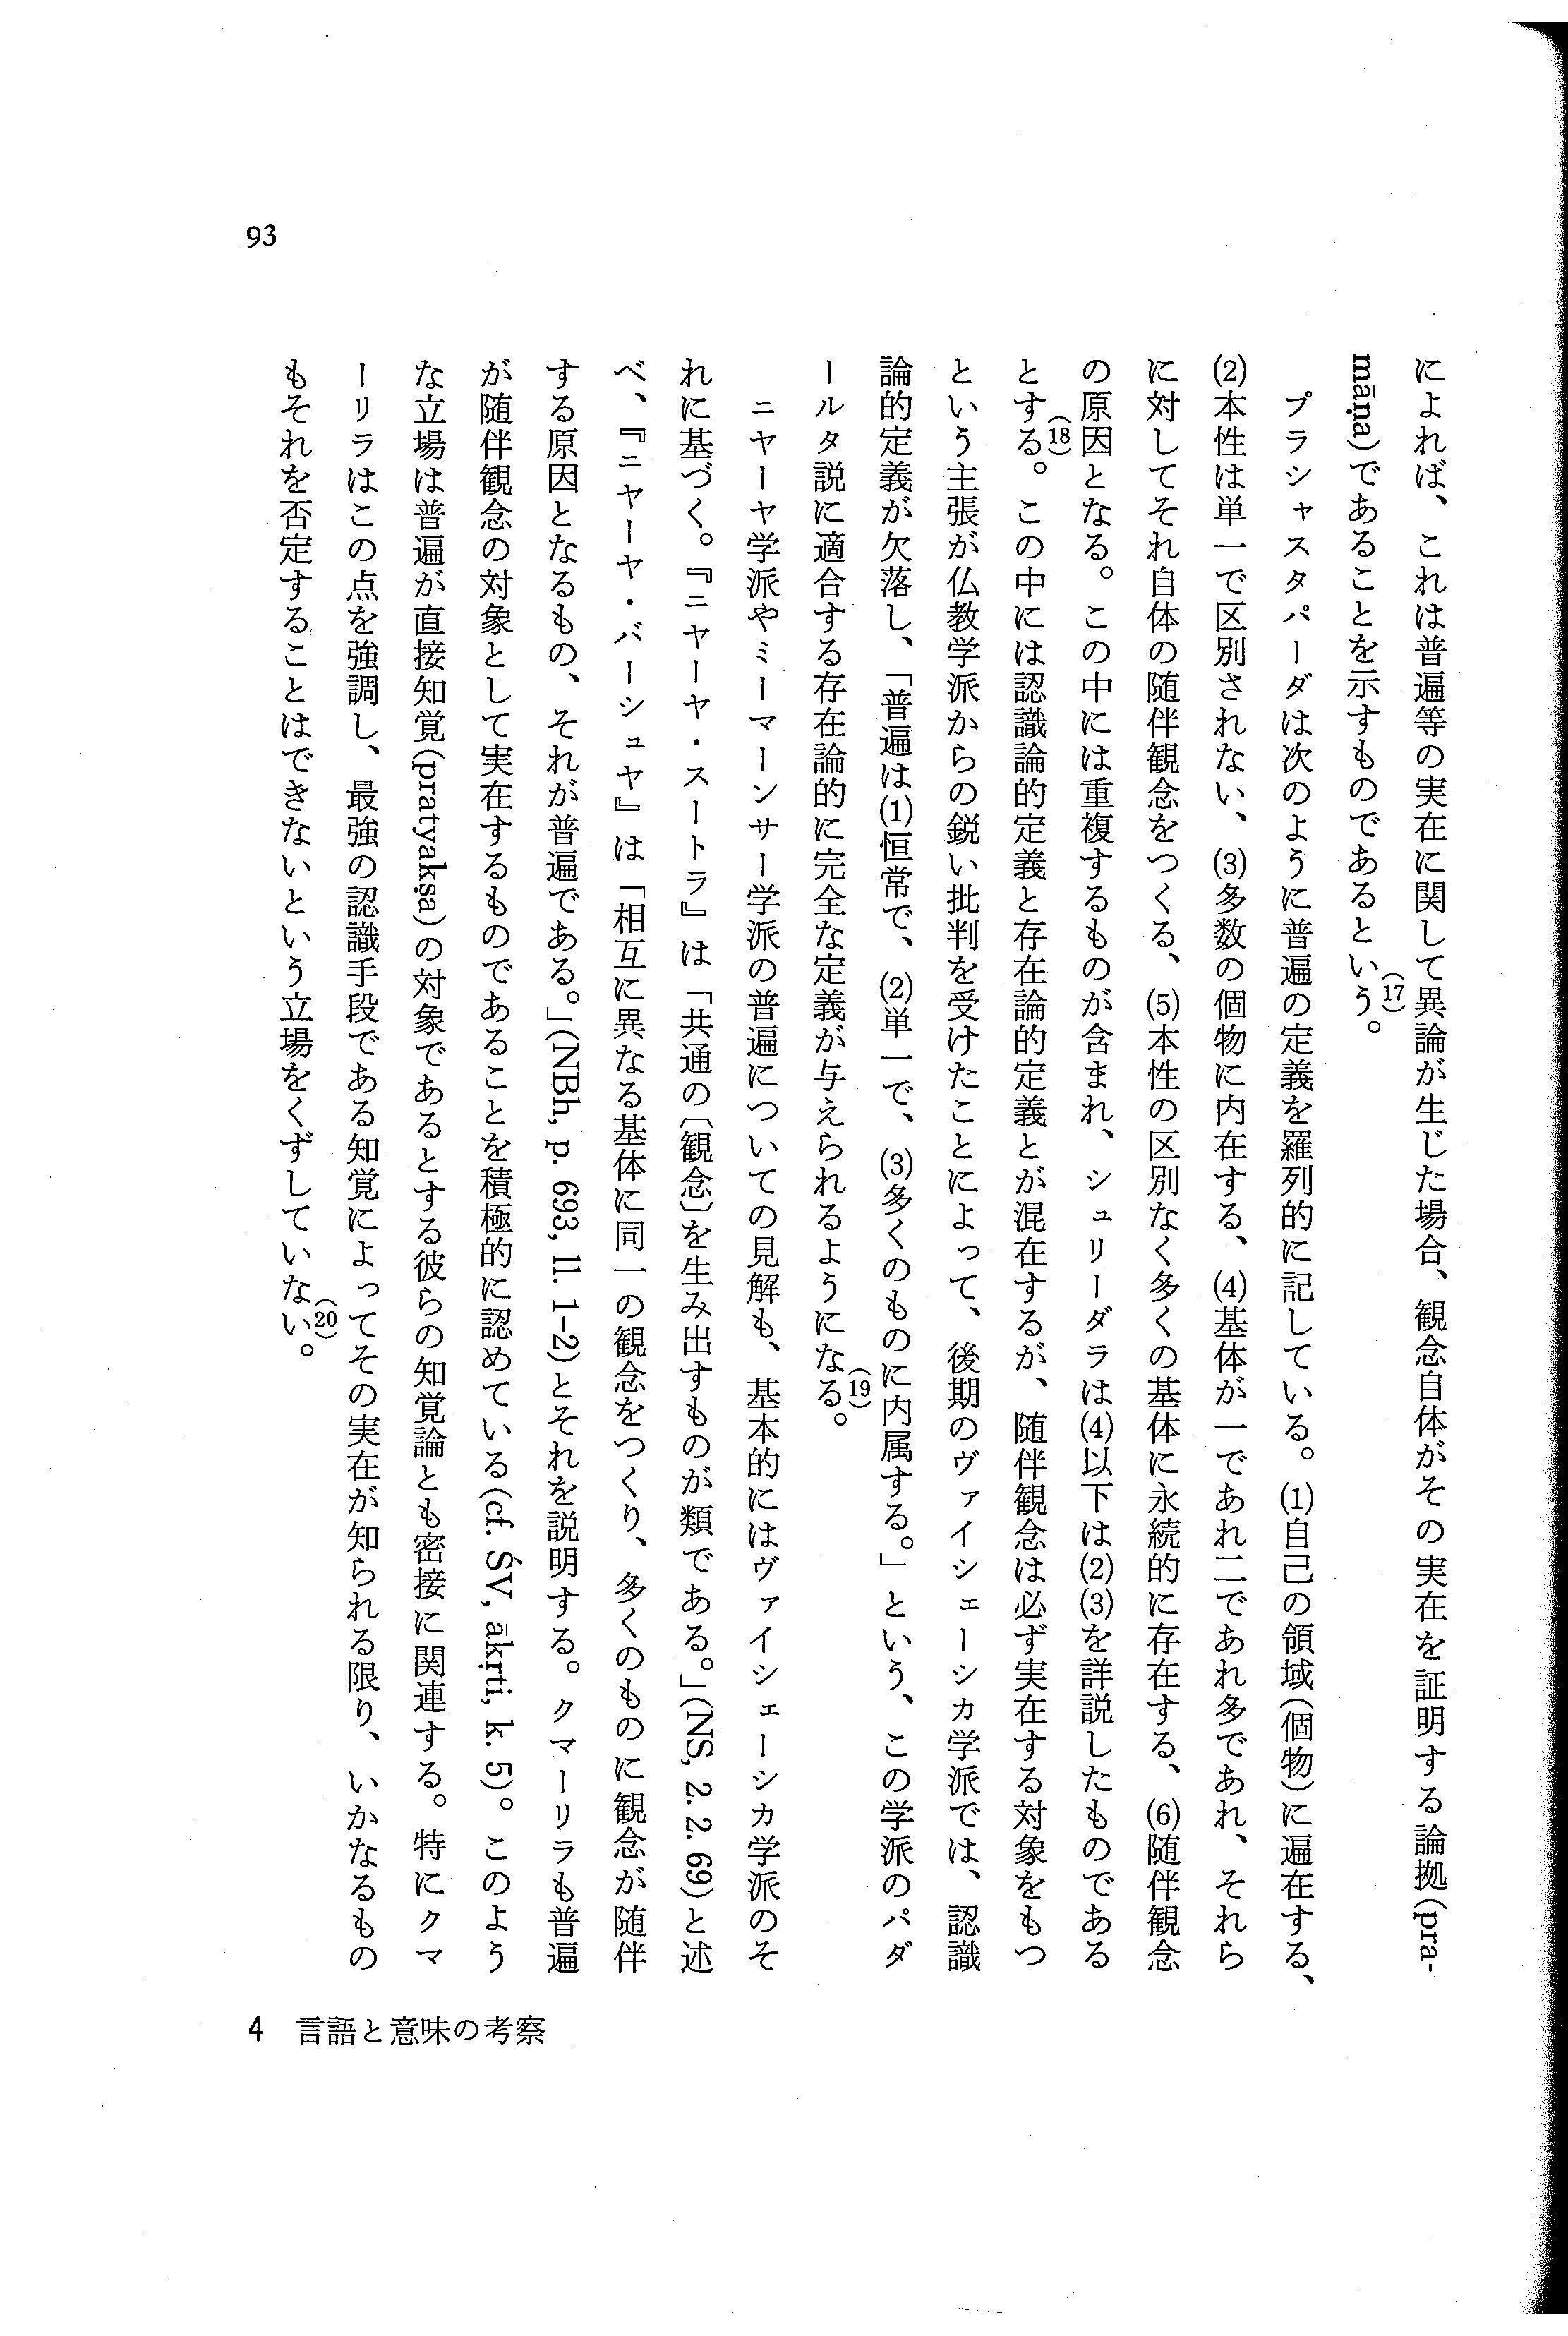 によれば、これは普遍等の実在に関して異論が生じた場合、観念自体がその実在を証明する論拠(pra-
māṇa)であることを示すものであるという(17)。
プラシャスタパーダは次のように普遍の定義を羅列的に記している。(1)自己の領域(個物)に遍在する、
(2)本性は単一で区別されない、(3)多数の個物に内在する、(4)基体が一であれ二であれ多であれ、それら
に対してそれ自体の随伴観念をつくる、(5)本性の区別なく多くの基体に永続的に存在する、(6)随伴観念
の原因となる。この中には重複するものが含まれ、シュリーダラは(4)以下は(2)(3)を詳説したものである
とする(18)。この中には認識論的定義と存在論的定義とが混在するが、随伴観念は必ず実在する対象をもつ
という主張が仏教学派からの鋭い批判を受けたことによって、後期のヴァイシェーシカ学派では、認識
論的定義が欠落し、「普遍は(1)恒常で、(2)単一で、(3)多くのものに内属する。」という、この学派のパダ
ールタ説に適合する存在論的に完全な定義が与えられるようになる(19)。
ニヤーヤ学派やミーマーンサー学派の普遍についての見解も、基本的にはヴァイシェーシカ学派のそ
れに基づく。『ニヤーヤ・スートラ』は「共通の〔観念〕を生み出すものが類である。」(NS, 2. 2. 69)と述
べ、『ニヤーヤ・バーシュヤ』は「相互に異なる基体に同一の観念をつくり、多くのものに観念が随伴
する原因となるもの、それが普遍である。」(NBh, p. 693, ll. 1-2)とそれを説明する。クマーリラも普遍
が随伴観念の対象として実在するものであることを積極的に認めている(cf. ŚV, ākṛti, k. 5)。このよう
な立場は普遍が直接知覚(pratyakṣa)の対象であるとする彼らの知覚論とも密接に関連する。特にクマ
ーリラはこの点を強調し、最強の認識手段である知覚によってその実在が知られる限り、いかなるもの
もそれを否定することはできないという立場をくずしていない(20)。
93
4 言語と意味の考察